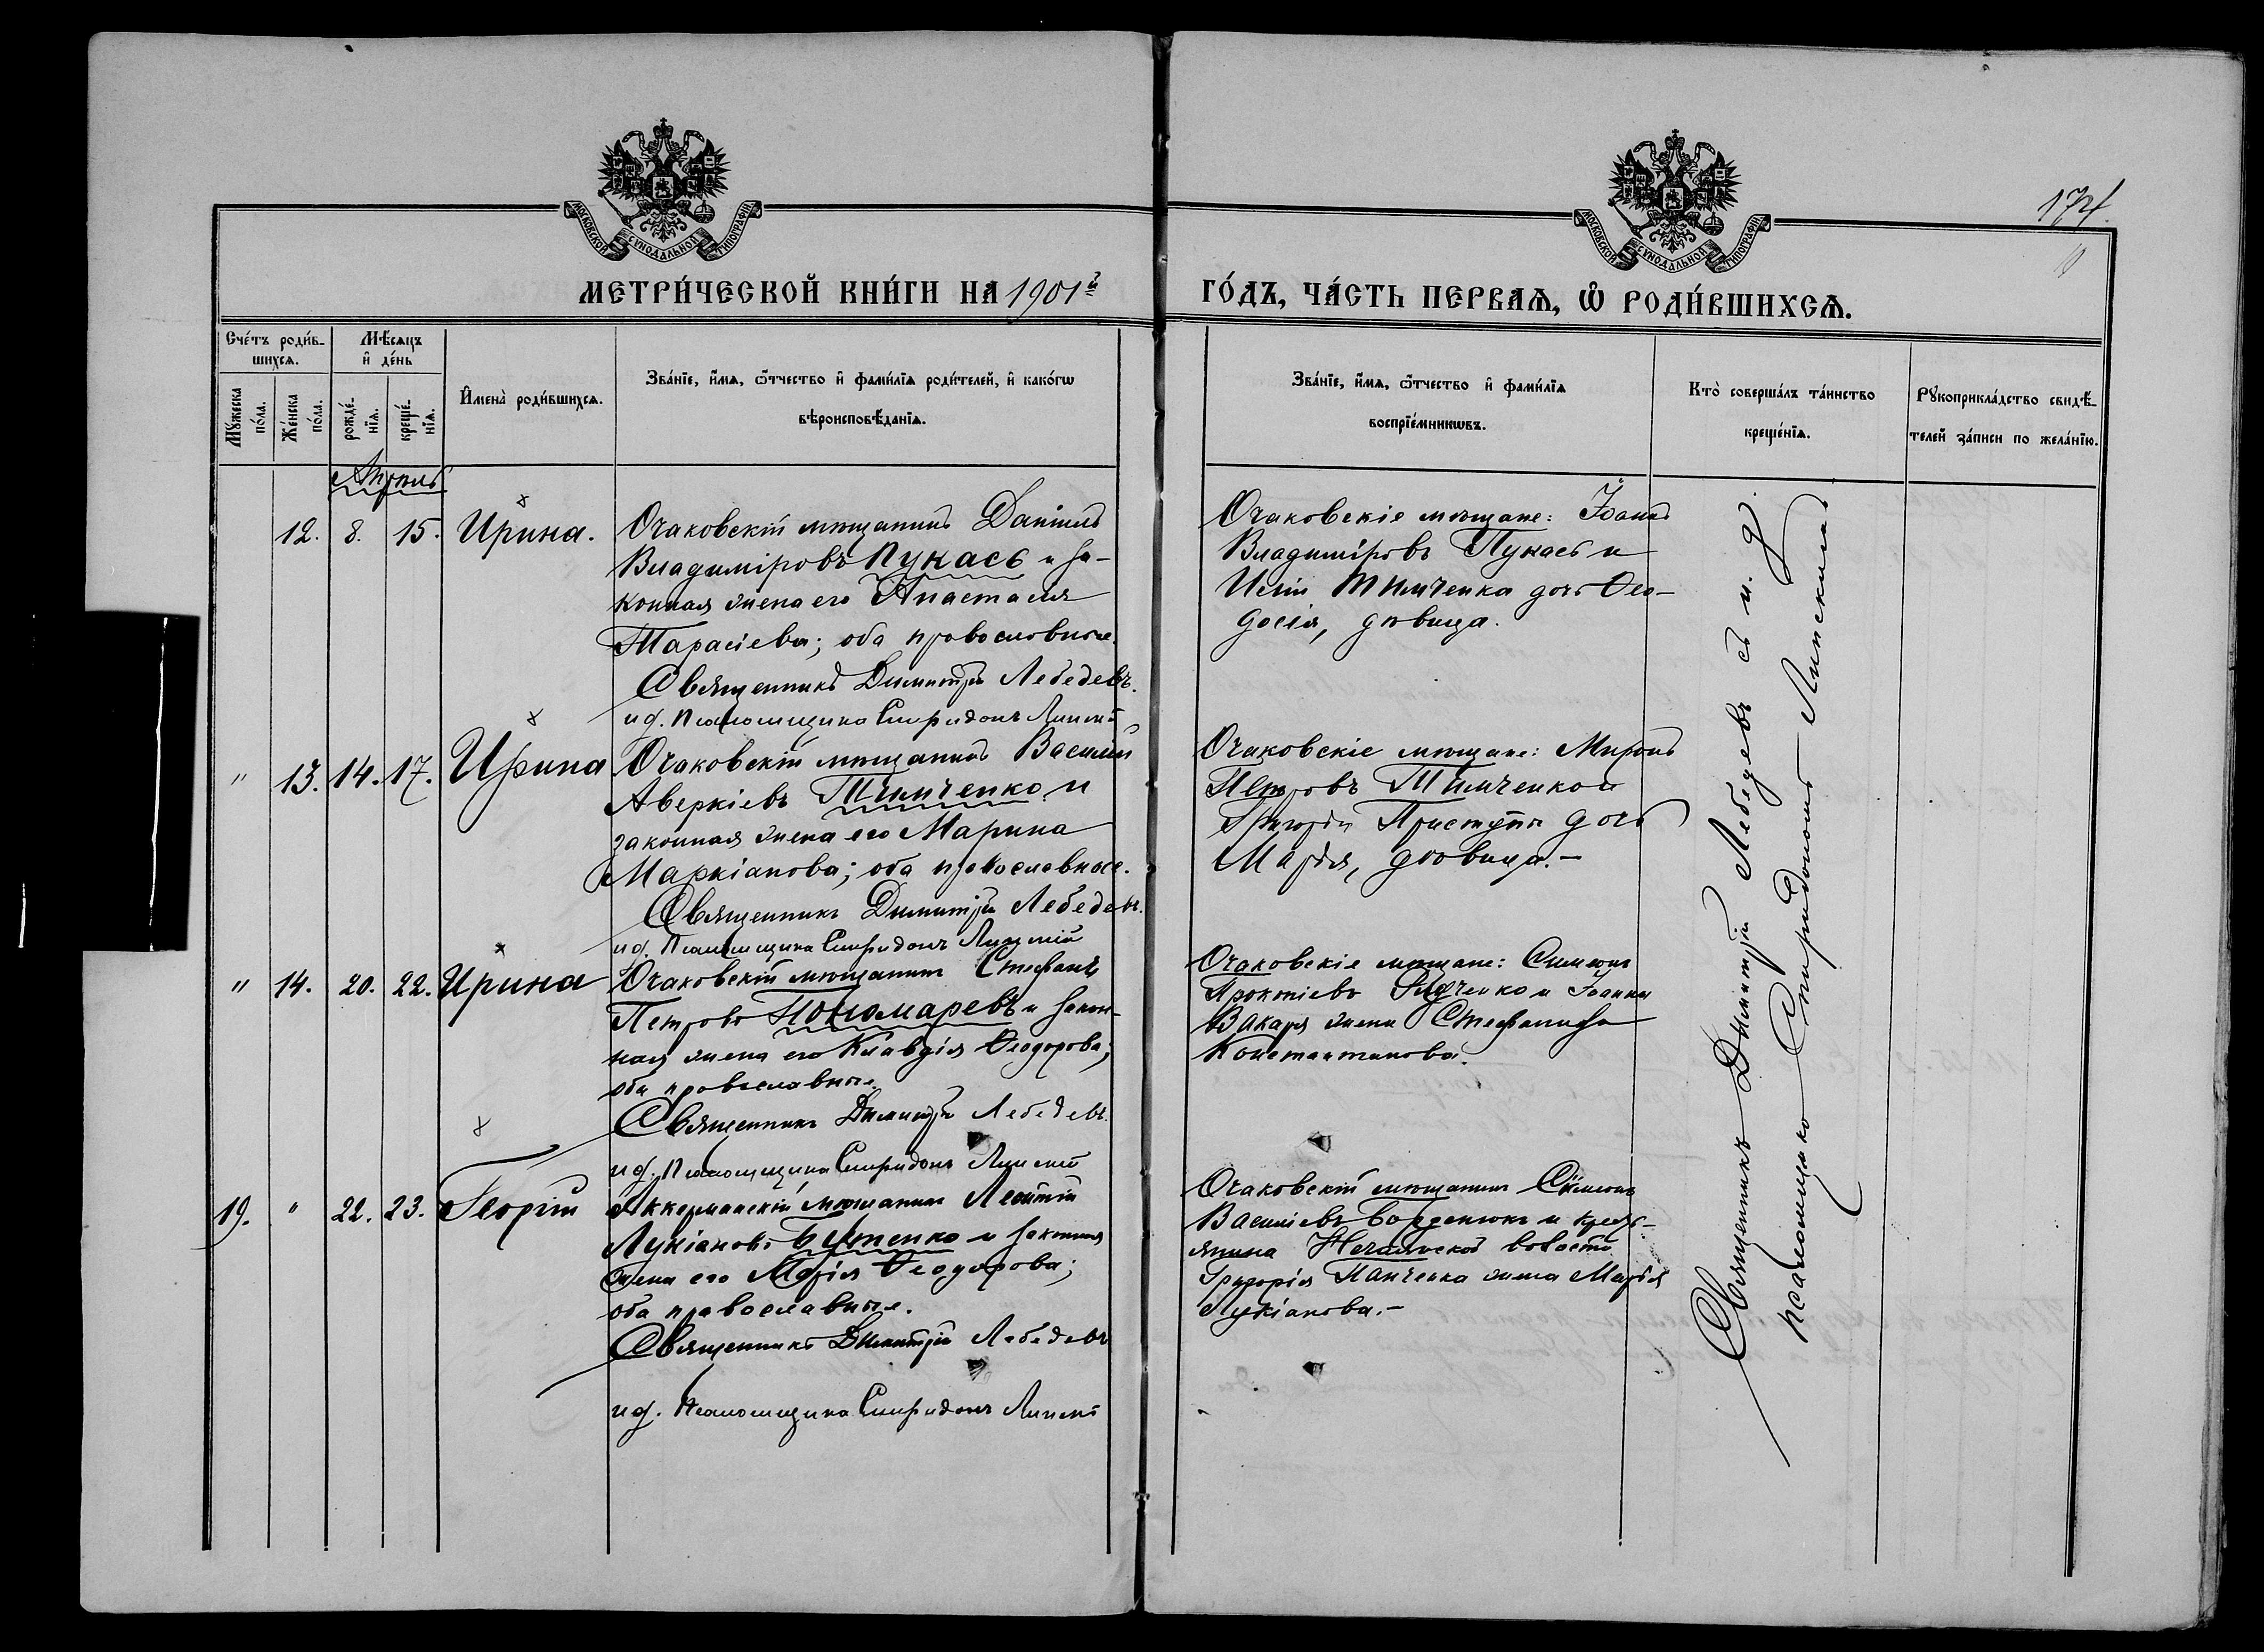 174
МОСКОВСКОЙ СѴНОДАЛЬНОЙ ТИПОГРАФІИ
МОСКОВСКОЙ СѴНОДАЛЬНОЙ ТИПОГРАФІИ
МЕТРИ́ЧЕСКОЙ КНИ́ГИ НА 1901й ГО́ДЪ, ЧА́СТЬ ПЕРВАѦ, Ѡ҆ РОДИ́ВШИХСѦ.
Сче́тъ роди́в-
шихсѧ.
Мꙋ́жеска
по́ла.
Же́нска
по́ла.
Мѣ́сѧцъ
и҆ де́нь
рожде́-
нїѧ.
креще́-
нїѧ.
И҆мена̀ роди́вшихсѧ.
Зва́нїе, и҆́мѧ, ѻ҆́тчество и҆ фами́лїѧ роди́телей, и҆ како́гѡ
вѣроисповѣ́данїѧ.
Зва́нїе, и҆́мѧ, ѻ҆́тчество и҆ фами́лїѧ
воспрїе́мникѡвъ.
Кто̀ соверша́лъ та́инство
креще́нїѧ.
Рꙋкоприкла́дство свидѣ́-
телей за́писи по жела́нїю.
Апрѣль
12. 8. 15. Ирина.
Очаковскій мѣщанинъ Даніилъ
Владиміровъ Пукасъ и за-
конная жена его Анастасія
Тарасіева; оба православные.
Священникъ Димитрій Лебедевъ.
и д. Псаломщика Спиридонъ Липскій
Очаковскіе мѣщане: Іоаннъ
Владиміровъ Пукасъ и
Тимченка дочь Ѳео-
досія, дѣвица.
" 13. 14. 17. Ирина
Очаковскій мѣщанинъ Василій
Аверкіевъ Тимченко и
законная жена его Марина
Маркіанова; оба православные.
Священникъ Димитрій Лебедевъ.
и д. Псаломщика Спиридонъ Липскій
Очаковскіе мѣщане: Миронъ
Петровъ Тимченко и
Григорія Приступы дочь
Марія, дѣвица.-
" 14. 20. 22. Ирина
Очаковскій мѣщанинъ Стефанъ
Петровъ Пономаревъ и закон-
ная жена его Клавдія Ѳеодорова;
оба православные.
Священникъ Димитрій Лебедевъ.
и д. Псаломщика Спиридонъ Липскій
Очаковскіе мѣщане: Симеонъ
и Іоанна
Вакаря жена Стефанида
Константинова.
19. " 22. 23. Георгій
Аккерманскій мѣщанинъ Леонтій
Лукіановъ Бутенко и законная
жена его Марія Ѳеодорова;
оба православные.
Священникъ Димитрій Лебедевъ
и д. Псаломщика Спиридонъ Липскій
Очаковскій мѣщанинъ Симеонъ
Василіевъ Борденюкъ и кресть-
янина Нечаянской волости
Григорія Панченка жена Марія
Лукіанова.-
Священникъ Димитрій Лебедевъ съ и. д.
псаломщика Спиридономъ Липскимъ